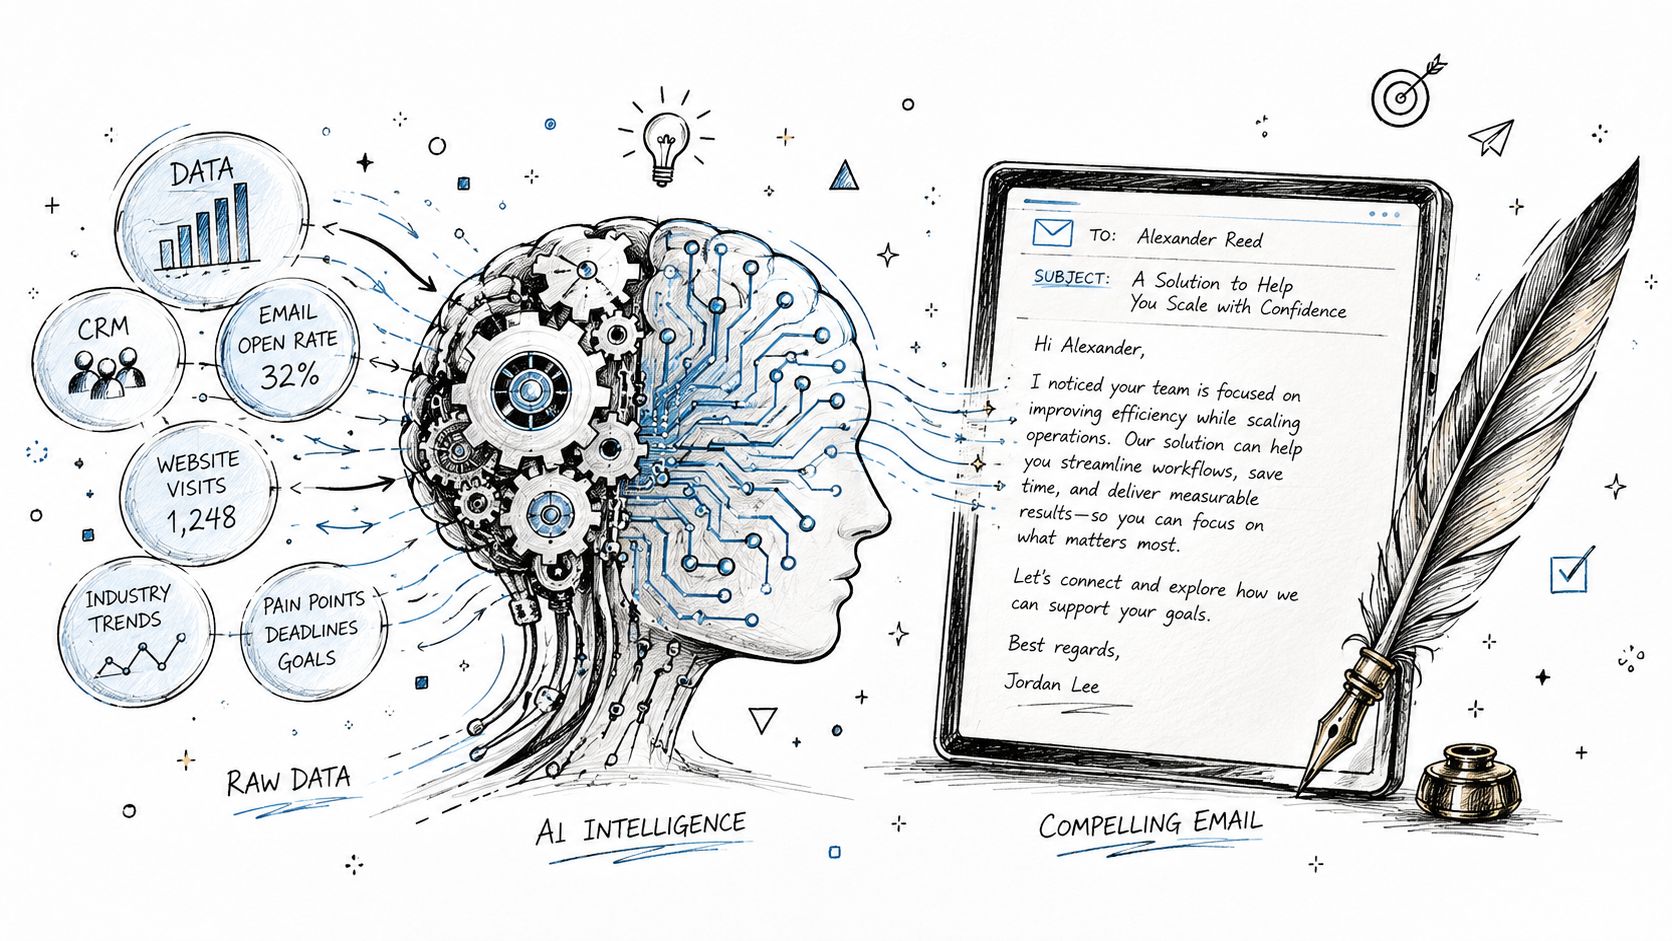 DATA
CRM
EMAIL
OPEN RATE
32%
WEBSITE
VISITS
1,248
INDUSTRY
TRENDS
PAIN POINTS
DEADLINES
GOALS
RAW DATA
AI INTELLIGENCE
TO: Alexander Reed
SUBJECT: A Solution to Help
You Scale with Confidence
Hi Alexander,
I noticed your team is focused on
improving efficiency while scaling
operations. Our solution can help
you streamline workflows, save
time, and deliver measurable
results—so you can focus on
what matters most.
Let's connect and explore how we
can support your goals.
Best regards,
Jordan Lee
COMPELLING EMAIL